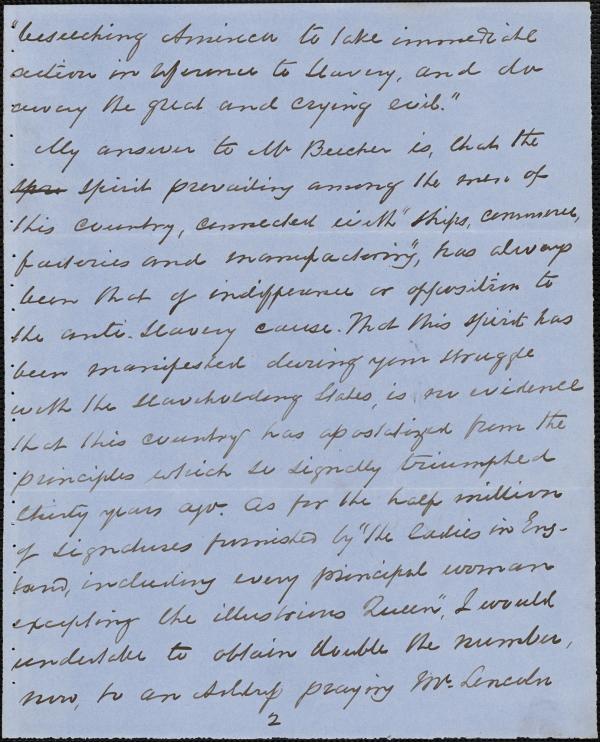 "beseeching America to take immediate
action in reference to Slavery, and do
away the great and crying evil."
My answer to Mr Beecher is, that the
spir spirit prevailing among the men of
this country, connected with "ships, commerce,
factories and manufactoring", has always
been that of indifference or opposition to
the anti-slavery cause. That this spirit has
been manifested during your struggle
with the Slaveholding States, is no evidence
that this country has apostatized from the
principles which so signally triumphed
thirty years ago. As for the half million
of signatures furnished by "the Ladies in Eng-
land, including every principal woman
excepting the illustrious Queen", I would
undertake to obtain double the number,
now, to an Address praying Mr. Lincoln
2